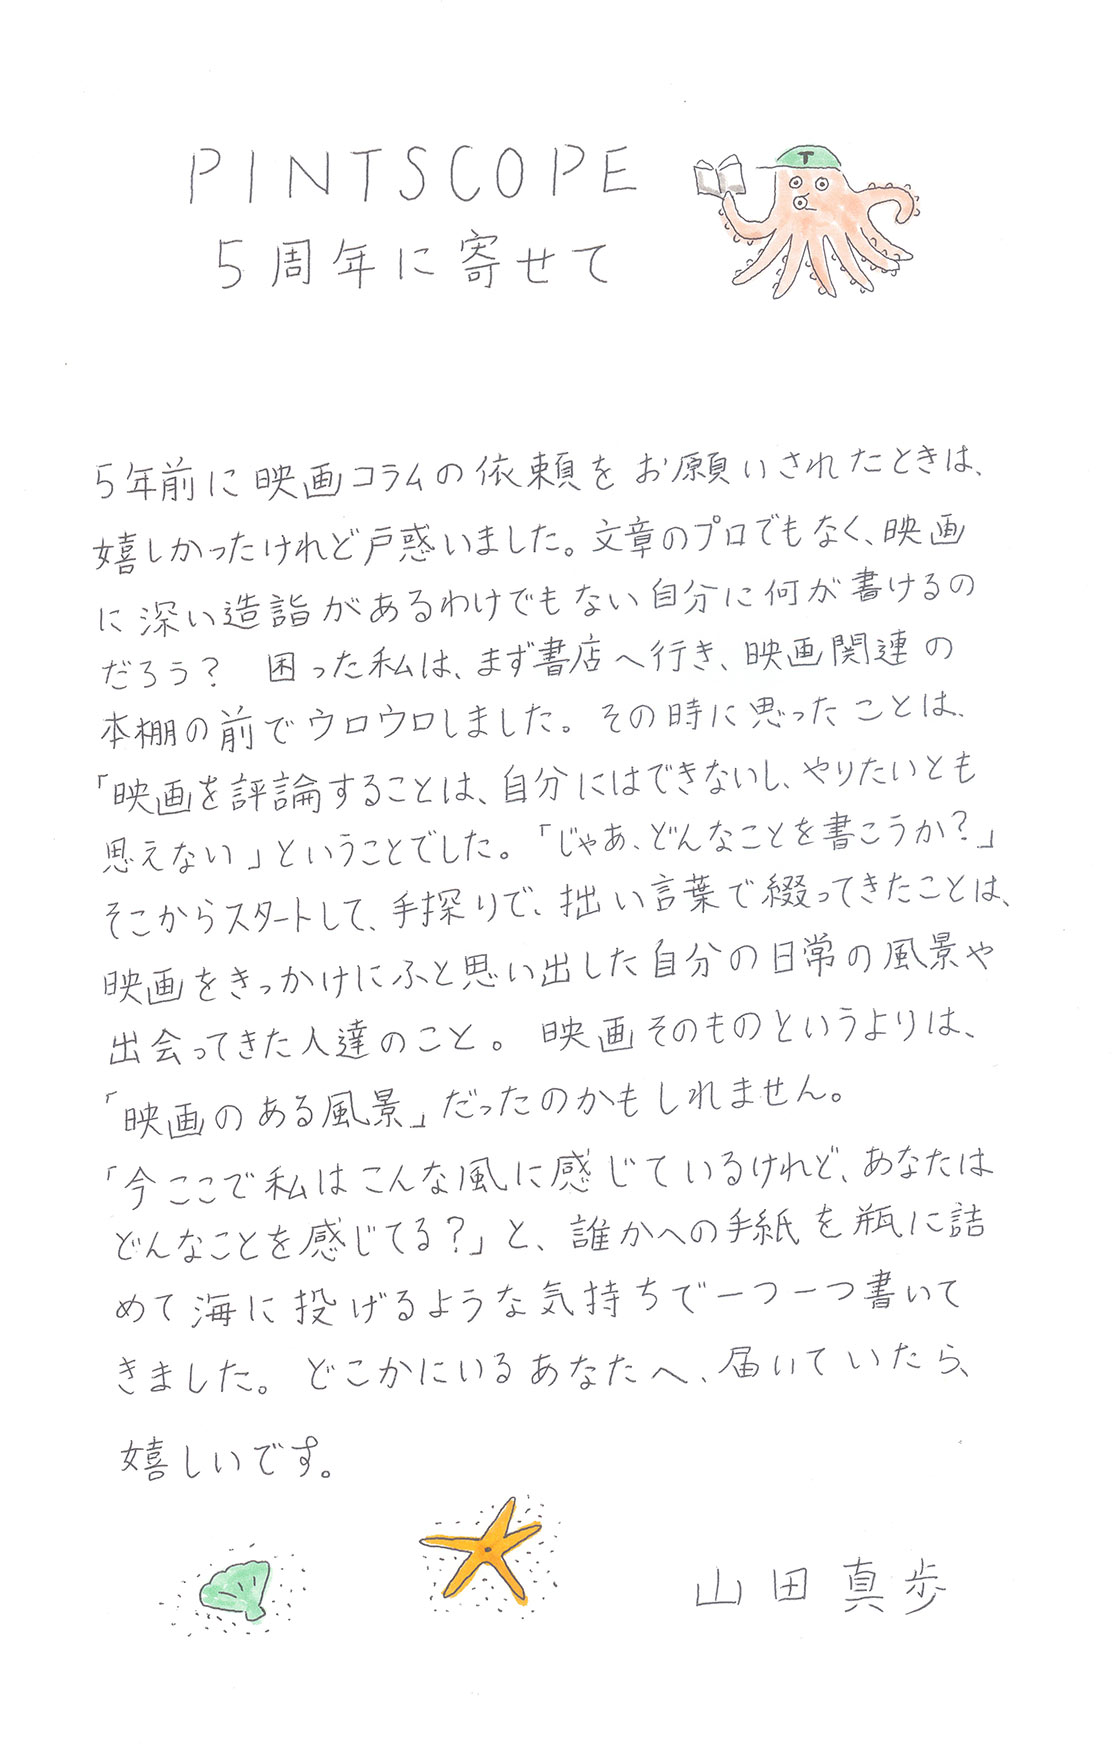 PINTSCOPE
T
5周年に寄せて
5年前に映画コラムの依頼をお願いされたときは、
嬉しかったけれど戸惑いました。文章のプロでもなく、映画
に深い造詣があるわけでもない自分に何が書けるの
だろう? 困った私は、まず書店へ行き、映画関連の
本棚の前でウロウロしました。その時に思ったことは、
「映画を評論することは、自分にはできないし、やりたいとも
思えない」ということでした。「じゃあ、どんなことを書こうか?」
そこからスタートして、手探りで、拙い言葉で綴ってきたことは、
映画をきっかけにふと思い出した自分の日常の風景や
出会ってきた人達のこと。映画そのものというよりは、
「映画のある風景」だったのかもしれません。
「今ここで私はこんな風に感じているけれど、あなたは
どんなことを感じてる?」と、誰かへの手紙を瓶に詰
めて海に投げるような気持ちで一つ一つ書いて
きました。どこかにいるあなたへ、届いていたら、
嬉しいです。
山田真歩